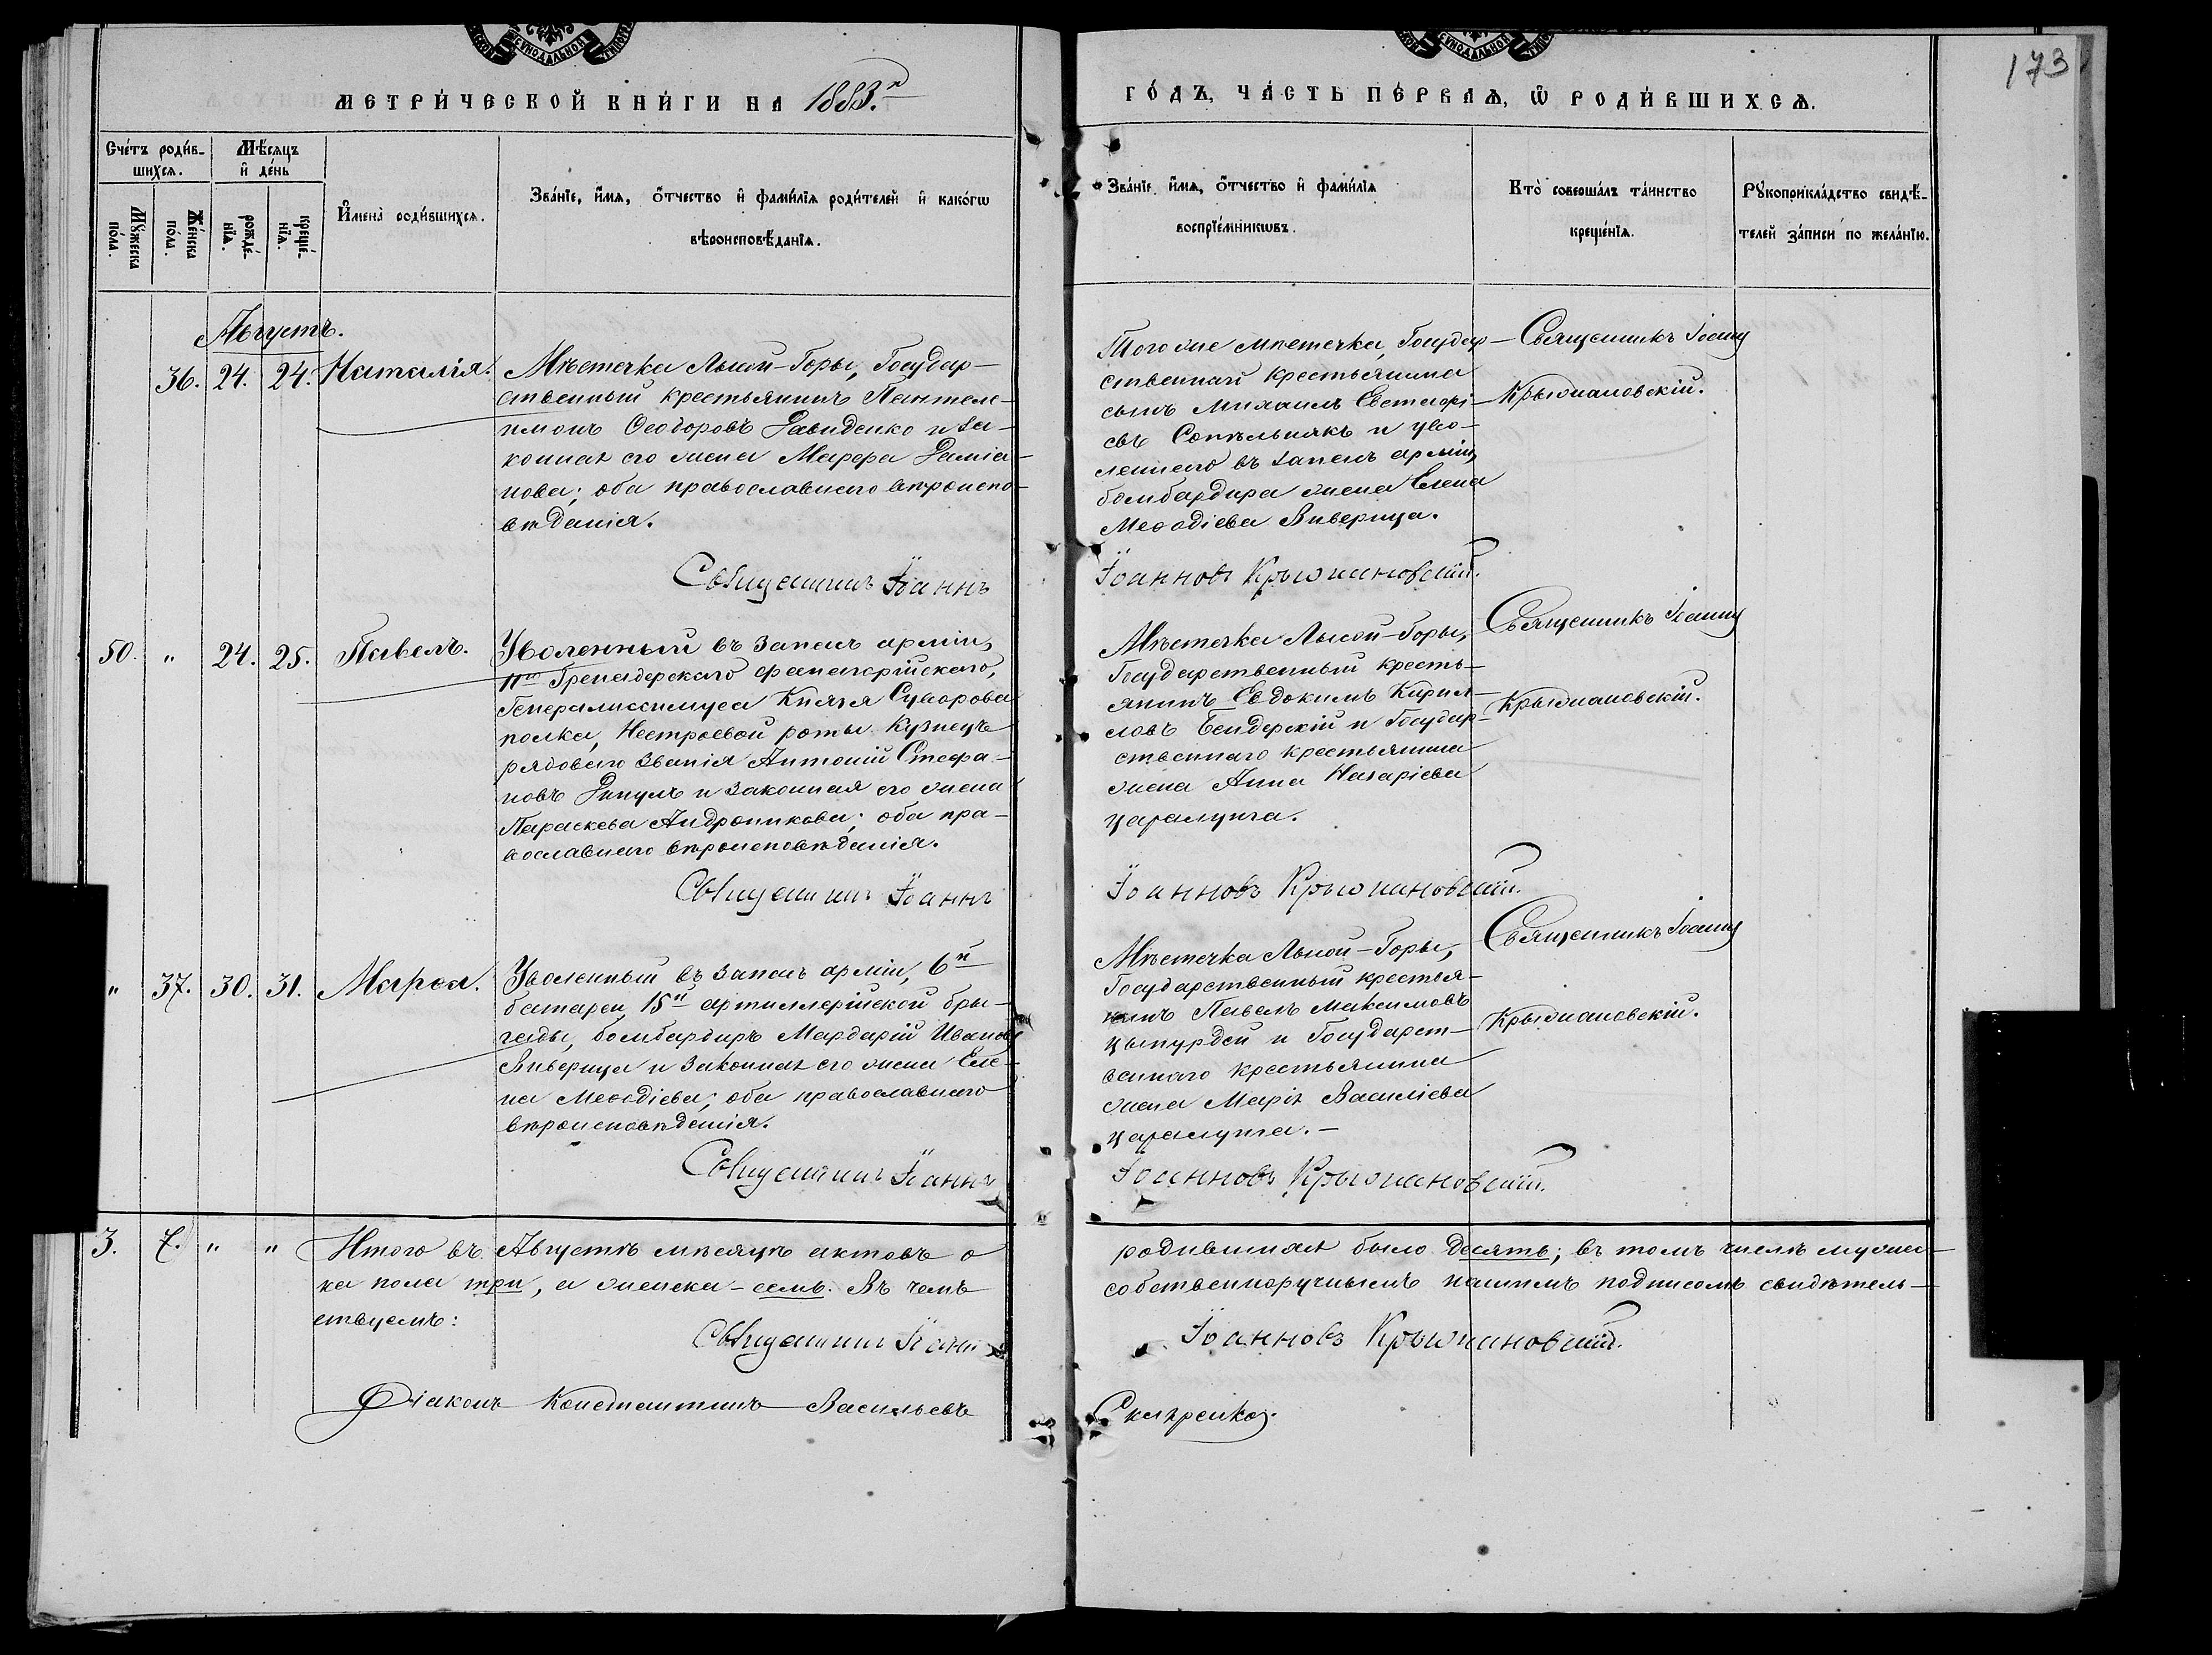 МЕТРИ́ЧЕСКОЙ КНИ́ГИ НА 1883.й
ГО́ДЪ, ЧА́СТЬ ПЕ́РВАѦ, Ѡ҆ РОДИ́ВШИХСѦ.
173
Сче́тъ роди́в-
шихсѧ.
Мѣ́сѧцъ
и҆ де́нь
Мꙋ́жеска
по́ла.
Же́нска
по́ла.
рожде́-
нїѧ.
креще́-
нїѧ.
И҆мена̀ роди́вшихсѧ.
Зва́нїе, и҆́мѧ, ѻ҆́тчество и҆ фамилїѧ роди́телей и҆ како́гѡ
вѣроисповѣ́данїѧ.
Зва́нїе, и҆́мѧ, ѻ҆́тчество и҆ фами́лїѧ
воспрїе́мникѡвъ.
Кто̀ соверша́лъ та́инство
креще́нїѧ.
Рꙋкоприкла́дство свидѣ́-
телей за́писи по жела́нїю.
Августъ.
36. 24. 24. Наталія.
Мѣстечка Лысой-Горы, Государ-
ственный крестьянинъ Пантеле-
имонъ Ѳеодоровъ Давиденко и за-
конная его жена Марѳа Даміа-
нова; оба православнаго вѣроиспо-
вѣданія.
Священникъ Іоаннъ
Того же мѣстечка, Государ-
ственнаго крестьянина
сынъ Михаилъ Евстафі-
евъ Сопѣльнякъ и уво-
леннаго въ запасъ арміи,
бомбардира жена Елена
Меѳодіева Виверица.
Іоанновъ Крыжановскій.
Священникъ Іоаннъ
Крыжановскій.
50. " 24. 25. Павелъ.
Уволенный въ запасъ арміи,
11го Гренадерскаго Фанагорійскаго,
Генералиссимуса Князя Суворова
полка, Нестроевой роты Кузнецъ
рядоваго званія Антоній Стефа-
новъ Дикулъ и законная его жена
Параскева Андроникова; оба пра-
вославнаго вѣроисповѣданія.
Священникъ Іоаннъ
Мѣстечка Лысой-Горы,
Государственный кресть-
янинъ Евдокимъ Кирил-
ловъ Бендерскій и Государ-
ственнаго крестьянина
жена Анна Назаріева
Царалунга.
Іоанновъ Крыжановскій.
Священникъ Іоаннъ
Крыжановскій.
" 37. 30. 31. Марѳа.
Уволенный въ запасъ арміи, 6й
батареи, 15й артиллерійской бри-
гады, бомбардиръ Мардарій Ивановъ
Виверица и законная его жена Еле-
на Меѳодіева; оба православнаго
вѣроисповѣданія.
Священникъ Іоаннъ
Мѣстечка Лысой-Горы,
Государственный крестья-
нинъ Павелъ Максимовъ
Цыпурдей и Государст-
веннаго крестьянина
жена Марія Василіева
Царалунга.-
Іоанновъ Крыжановскій.
Священникъ Іоаннъ
Крыжановскій.
3. 7. " " Итого въ Августѣ мѣсяцѣ актовъ о
родившихся было десять; въ томъ числѣ мужес-
ка пола три, а женска - семь. Въ чемъ
собственноручнымъ нашимъ подписомъ свидѣтель-
ствуемъ:
Священникъ Іоаннъ
Іоанновъ Крыжановскій.
Діаконъ Константинъ Васильевъ